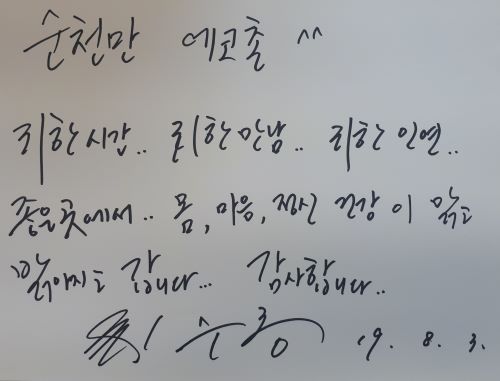 순천만 에코촌 ^^
귀한 시간.. 귀한 만남.. 귀한 인연..
좋은 곳에서.. 몸, 마음, 정신 건강이 맑고
맑아지고 갑니다... 감사합니다..
수종 19. 8. 3.